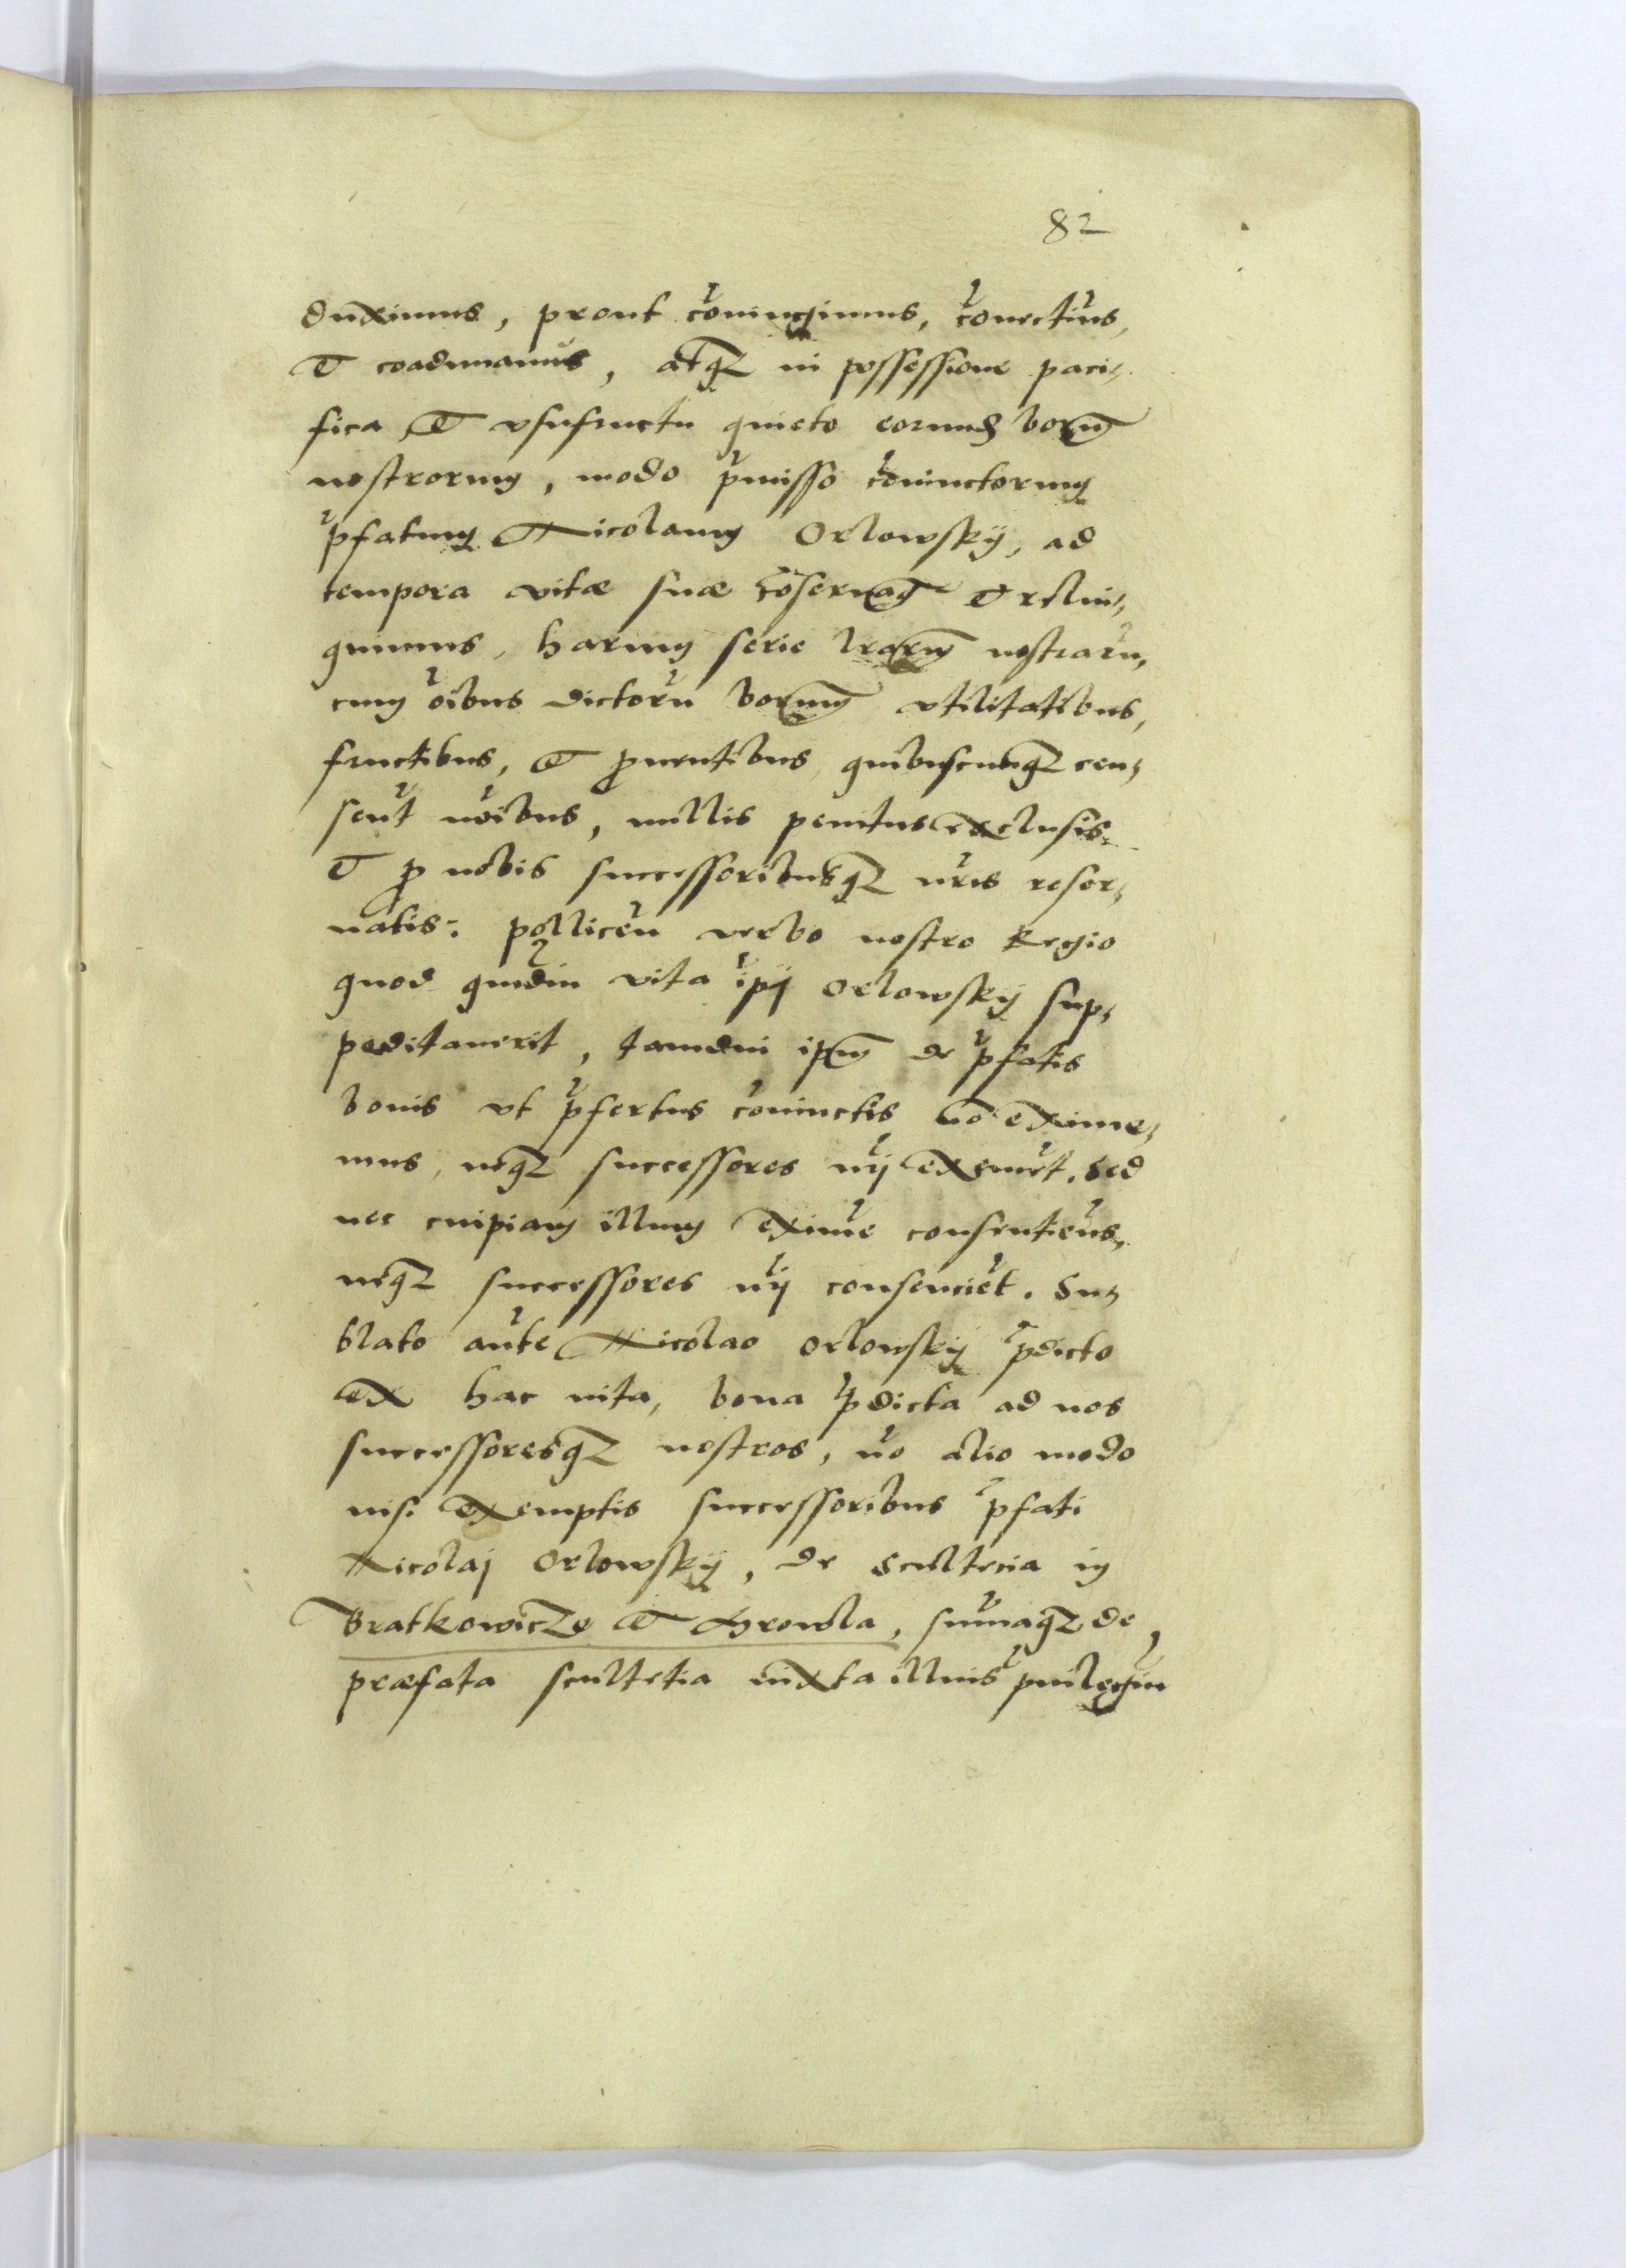 82
duximus, prout co͂niu͂gimus, co͂nectim͂s,
et coadunamus, atq3 in possessione paci-
fica et vsufructu quieto eorund͂ bor͂um
nostrorum, modo p͂misso co͂niunctorum
p͂fatum Nicolaum Orlowskÿ, ad
tempora vitæ suæ co͂seruam͂ et relin-
quimus, harum serie lr͂arum nostraru͂,
cum o͂ibus dictoru͂ bor͂um vtilitatibus,
fructibus, et ꝓuentibus quibuscunq3 cen-
sent͂ no͂ibus, nullis penitus exclusis.
et ꝓ nobis successoribusq3 nr͂is reser-
uatis: pollicem͂ verbo nostro Regio
quod quãdiu vita ip͂ij Orlowskÿ sup-
peditauerit, tamdiu ip͂um de p͂fatis
bonis vt p͂fertus co͂niunctis no͂ exime-
mus, neq3 successores nr͂ij eximent͂. Sed
nec cuipiam illum eximere͂ consentiem͂s,
neq3 successores nr͂ij consencie͂t. Su-
blato aut͂e Nicolao Orlowskÿ p͂dicto
ex hac uita, bona p͂dicta ad nos
successoresq3 nostros, no͂ alio modo
nisi exemptis successoribus p͂fati
Nicolaj Orlowskÿ, de Scultecia in
Bratkowicze et Mrowla, sum͂aq3 de
præfata scultetia iuxta illius p͂uilegiu͂